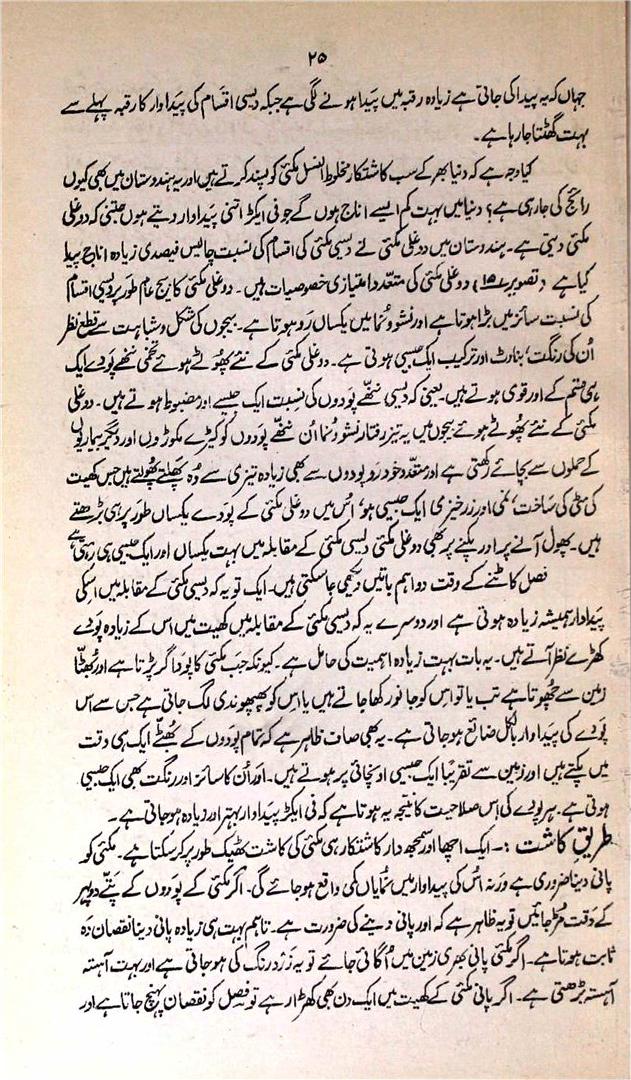 ۲۵
جہاں کہ یہ پیدا کی جاتی ہے زیادہ رقبہ میں پیدا ہونے لگی ہے جبکہ دیسی اقسام کی پیداوار کا رقبہ پہلے سے
بہت گھٹتا جا رہا ہے۔
کیا وجہ ہے کہ دنیا بھر کے سب کاشتکار مخلوط النسل مکئی کو پسند کرتے ہیں اور یہ ہندوستان میں بھی کیوں
رائج کی جا رہی ہے؟ دنیا میں بہت کم ایسے اناج ہوں گے جو فی ایکڑ اتنی پیداوار دیتے ہوں جتنی کہ دوغلی
مکئی دیتی ہے۔ ہندوستان میں دوغلی مکئی نے دیسی مکئی کی اقسام کی نسبت چالیس فیصدی زیادہ اناج پیدا
کیا ہے (تصویر ۱۵) دوغلی مکئی کی متعدد امتیازی خصوصیات ہیں۔ دوغلی مکئی کا بیج عام طور پر دیسی اقسام
کی نسبت سائز میں بڑا ہوتا ہے اور نشوونما میں یکساں رو ہوتا ہے۔ بیجوں کی شکل و شباہت سے قطع نظر
اُن کی رنگت، بناوٹ اور ترکیب ایک جیسی ہوتی ہے۔ دوغلی مکئی کے نئے پھوٹے ہوئے تخمی ننھے پودے ایک
ہی قسم کے اور قوی ہوتے ہیں۔ یعنی کہ دیسی ننھے پودوں کی نسبت ایک جیسے اور مضبوط ہوتے ہیں۔ دوغلی
مکئی کے نئے پھوٹے ہوئے بیجوں میں یہ تیز رفتار نشوونما اُن ننھے پودوں کو کیڑے مکوڑوں اور دیگر بیماریوں
کے حملوں سے بچائے رکھتی ہے اور متعدد خودرو پودوں سے بھی زیادہ تیزی سے وُہ پھلتے پھولتے ہیں جس کھیت
کی مٹی کی ساخت، نمی اور زرخیزی ایک جیسی ہو، اُس میں دوغلی مکئی کے پودے یکساں طور پر ہی بڑھتے
ہیں۔ پھول آنے پر اور پکنے پر بھی دوغلی مکئی دیسی مکئی کے مقابلہ میں بہت یکساں اور ایک جیسی ہی رہی ہے
فصل کاٹنے کے وقت دو اہم باتیں دیکھی جا سکتی ہیں۔ ایک تو یہ کہ دیسی مکئی کے مقابلہ میں اسکی
پیداوار ہمیشہ زیادہ ہوتی ہے اور دوسرے یہ کہ دیسی مکئی کے مقابلہ میں کھیت میں اس کے زیادہ پودے
کھڑے نظر آتے ہیں۔ یہ بات بہت زیادہ اہمیت کی حامل ہے۔ کیونکہ جب مکئی کا پودا گر پڑتا ہے اور بھٹا
زمین سے چھوتا ہے تب یا تو اس کو جانور کھا جاتے ہیں یا اس کو پھپھوندی لگ جاتی ہے جس سے اس
پودے کی پیداوار بالکل ضائع ہو جاتی ہے۔ یہ بھی صاف ظاہر ہے کہ تمام پودوں کے بھٹے ایک ہی وقت
میں پکتے ہیں اور زمین سے تقریباً ایک جیسی اونچائی پر ہوتے ہیں۔ اور اُن کا سائز اور رنگت بھی ایک جیسی
ہوتی ہے۔ ہر پودے کی اس صلاحیت کا نتیجہ یہ ہوتا ہے کہ فی ایکڑ پیداوار بہتر اور زیادہ ہو جاتی ہے۔
طریق کاشت :۔ ایک اچھا اور سمجھ دار کاشتکار ہی مکئی کی کاشت ٹھیک طور پر کر سکتا ہے۔ مکئی کو
پانی دینا ضروری ہے ورنہ اُس کی پیداوار میں نمایاں کمی واقع ہو جائے گی۔ اگر مکئی کے پودوں کے پتے دوپہر
کے وقت مڑ جائیں تو یہ ظاہر ہے کہ اور پانی دینے کی ضرورت ہے۔ تاہم بہت ہی زیادہ پانی دینا نقصان دہ
ثابت ہوتا ہے۔ اگر مکئی پانی بھری زمین میں اُگائی جائے تو یہ زرد رنگ کی ہو جاتی ہے اور بہت آہستہ
آہستہ بڑھتی ہے۔ اگر پانی مکئی کے کھیت میں ایک دن بھی کھڑا رہے تو فصل کو نقصان پہنچ جاتا ہے اور